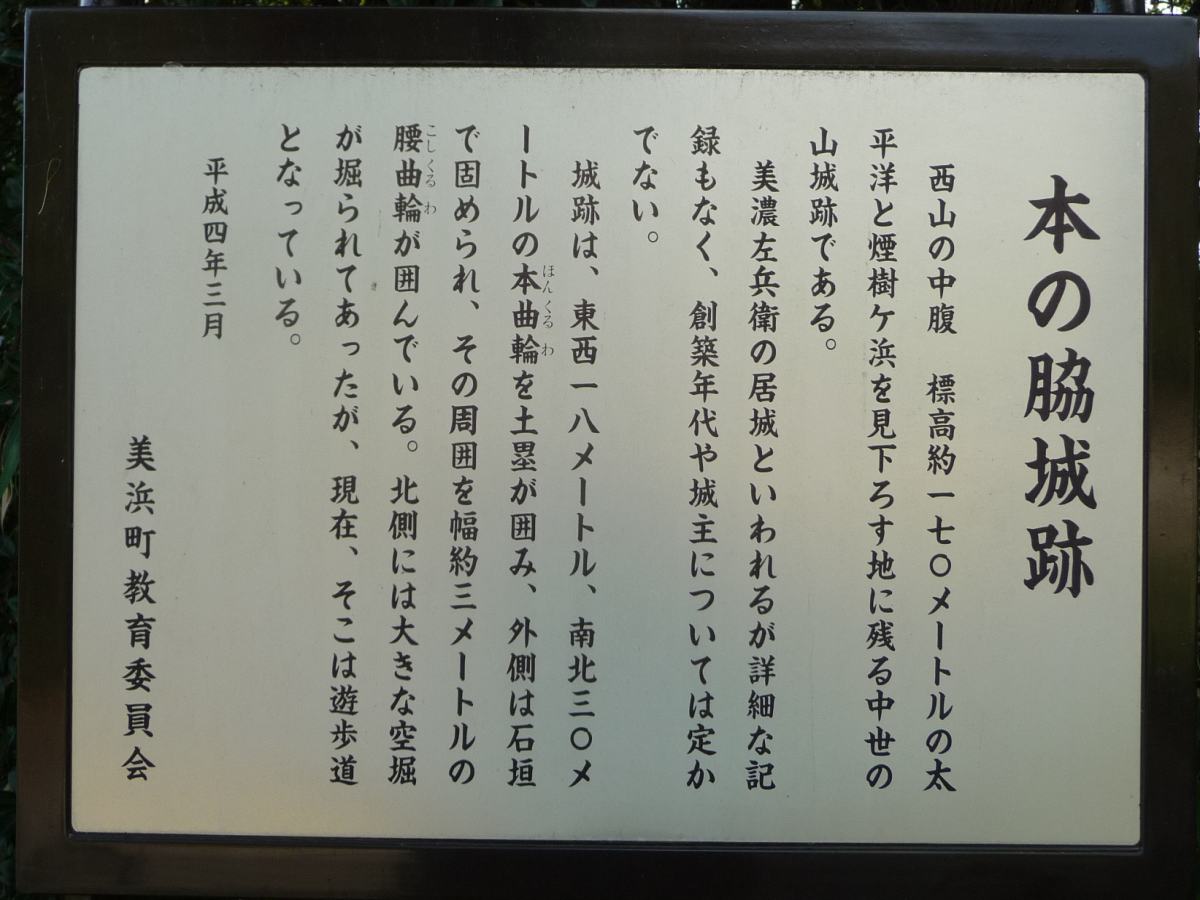 本の脇城跡
西山の中腹　標高約一七〇メートルの太
平洋と煙樹ケ浜を見下ろす地に残る中世の
山城跡である。
美濃左兵衛の居城といわれるが詳細な記
録もなく、創築年代や城主については定か
でない。
城跡は、東西一八メートル、南北三〇メ
ートルの本曲輪を土塁が囲み、外側は石垣
ほんくるわ
で固められ、その周囲を幅約三メートルの
腰曲輪が囲んでいる。北側には大きな空堀
こしくるわ
が堀られてあったが、現在、そこは遊歩道
となっている。
平成四年三月
美浜町教育委員会